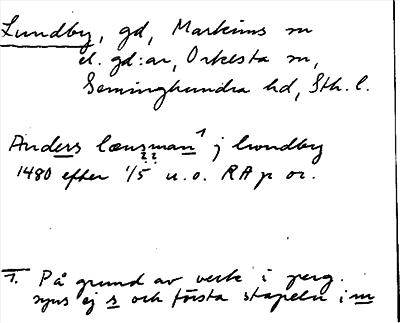 Lundby, gd, Markims sn
el. gd:ar, Orkesta sn,
Seminghundra hd, Sth. l.
Anders lænsman¹ j lwndby
1480 efter 1/5 u.o. RAp or.
1. På grund av veck i perg.
syns ej s och första stapeln i m